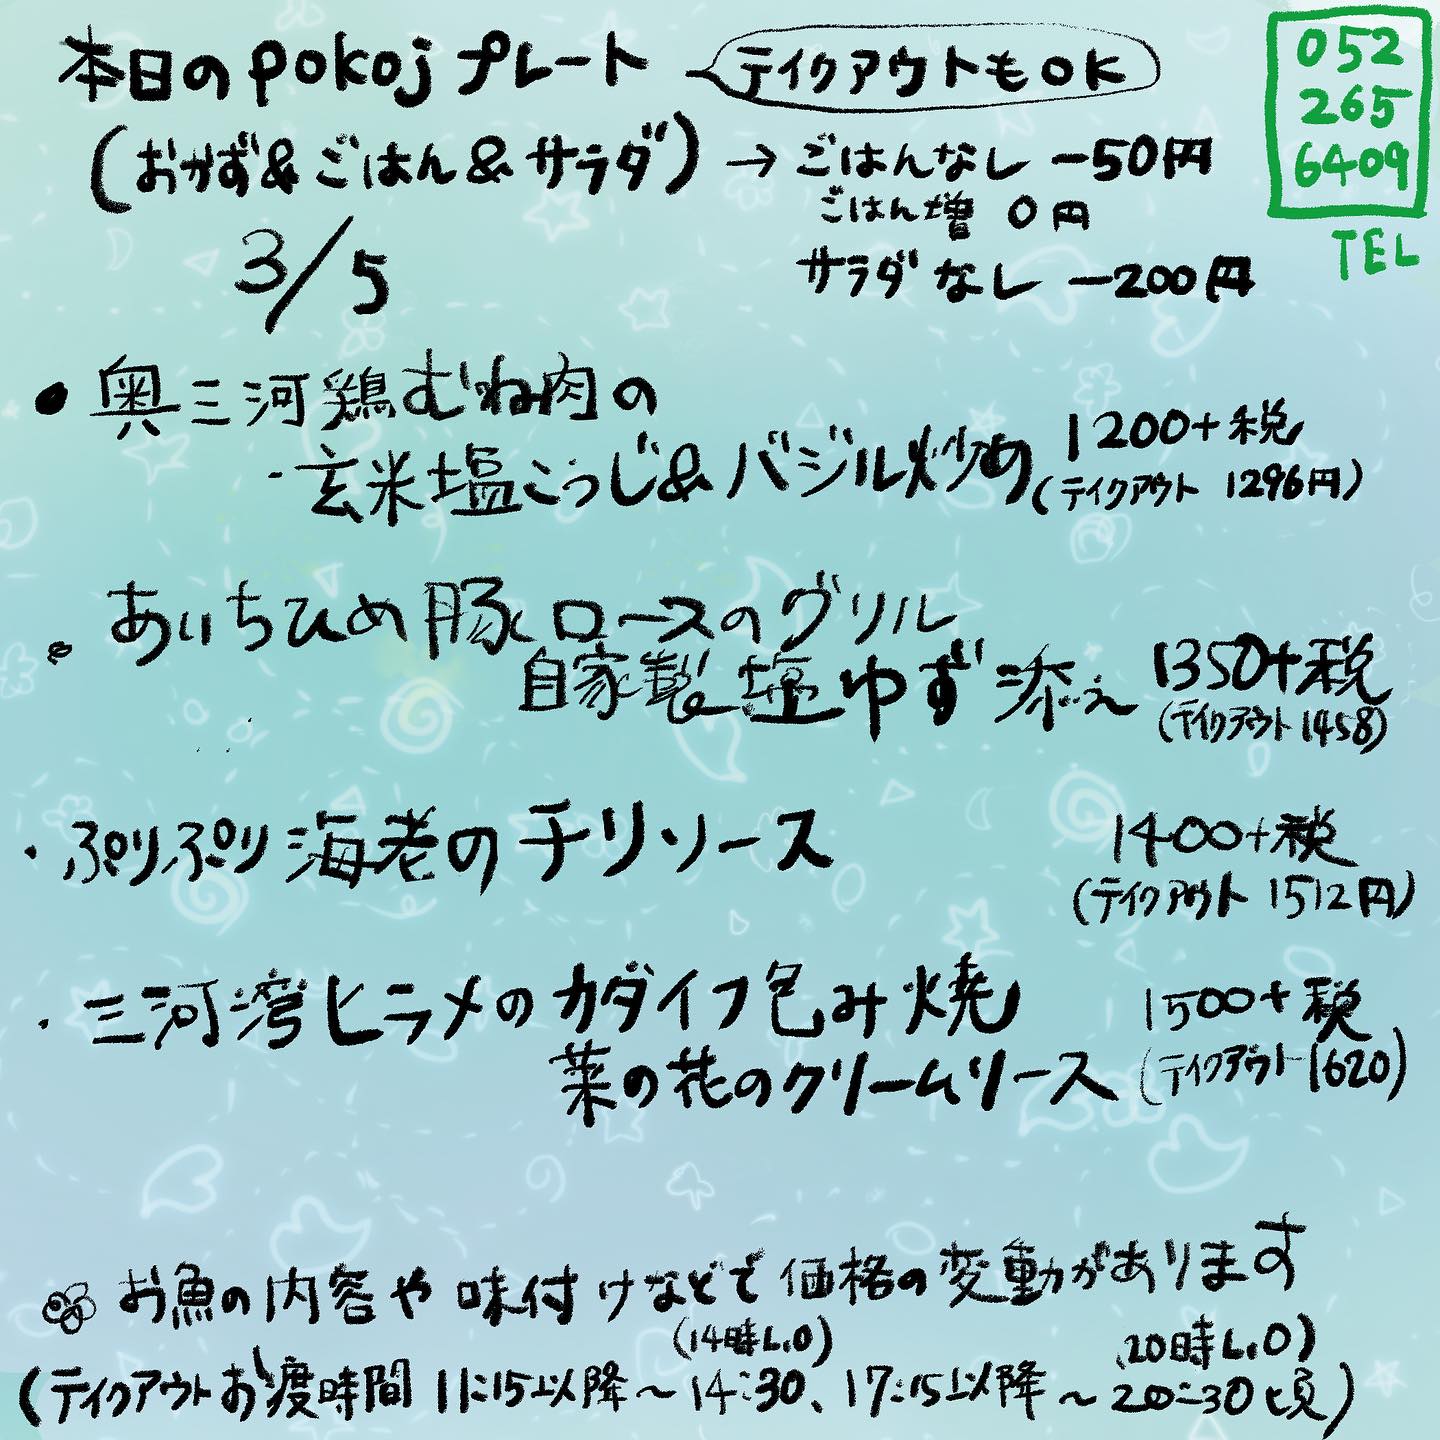 本日のpokojプレート
テイクアウトもOK
052
265
6409
TEL
(おかず&ごはん&サラダ)→ごはんなし −50円
ごはん増 0円
サラダなし −200円
3/5
・奥三河鶏むね肉の
・玄米塩こうじ&バジル炒め
1200+税
(テイクアウト 1296円)
。あいちひめ豚ロースのグリル
自家製塩ゆず添え
1350+税
(テイクアウト1458)
・ぷりぷり海老のチリソース
1400+税
(テイクアウト 1512円)
・三河湾ヒラメのカダイフ包み焼
菜の花のクリームソース
1500+税
(テイクアウト1620)
お魚の内容や味付けなどで価格の変動があります
(14時L.O)
20時L.O)
(テイクアウトお渡時間 11:15以降〜14:30、17:15以降〜20:30頃)